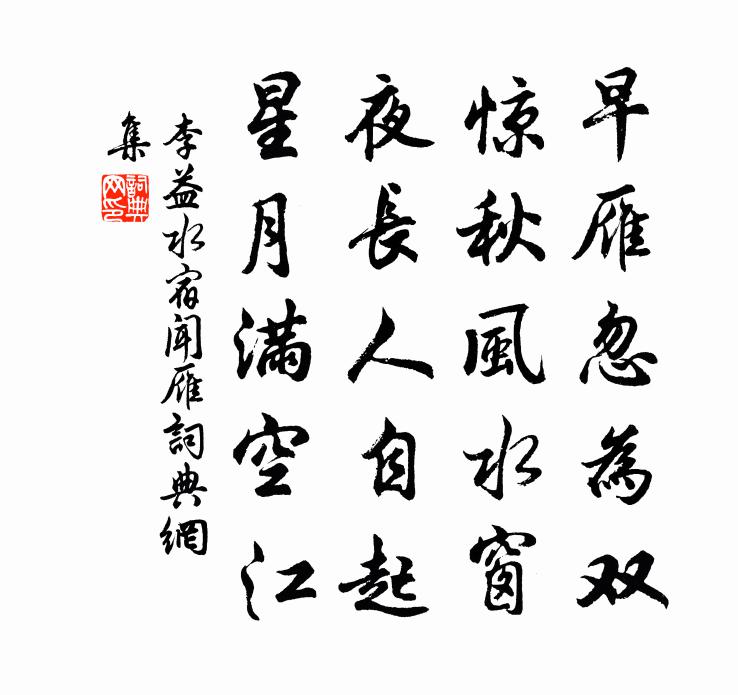 早雁忽為双
惊秋風水窗
夜長人自起
星月满空江
李益水宿闻雁詞典網
集
詞典
网印